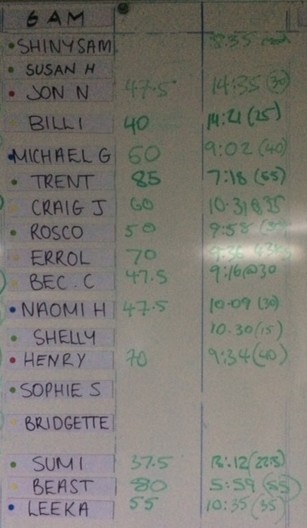 6 AM
SHINYSAM
SUSAN H
JON N 47.5 14:35
BILLI 40 14:21 (25)
MICHAEL G 60 9:02 (40)
TRENT 85 7:18 (55)
CRAIG J 60
ROSCO 50 9:58
ERROL 70
BEC. C 47.5 9:16@30
NAOMI H 47.5 10.09 (30)
SHELLY 10.30 (15)
HENRY 70 9:34 (40)
SOPHIE S
BRIDGETTE
SUMI 37.5
BEAST 80 5:59 (55)
LEEKA 55 10:35 (35)